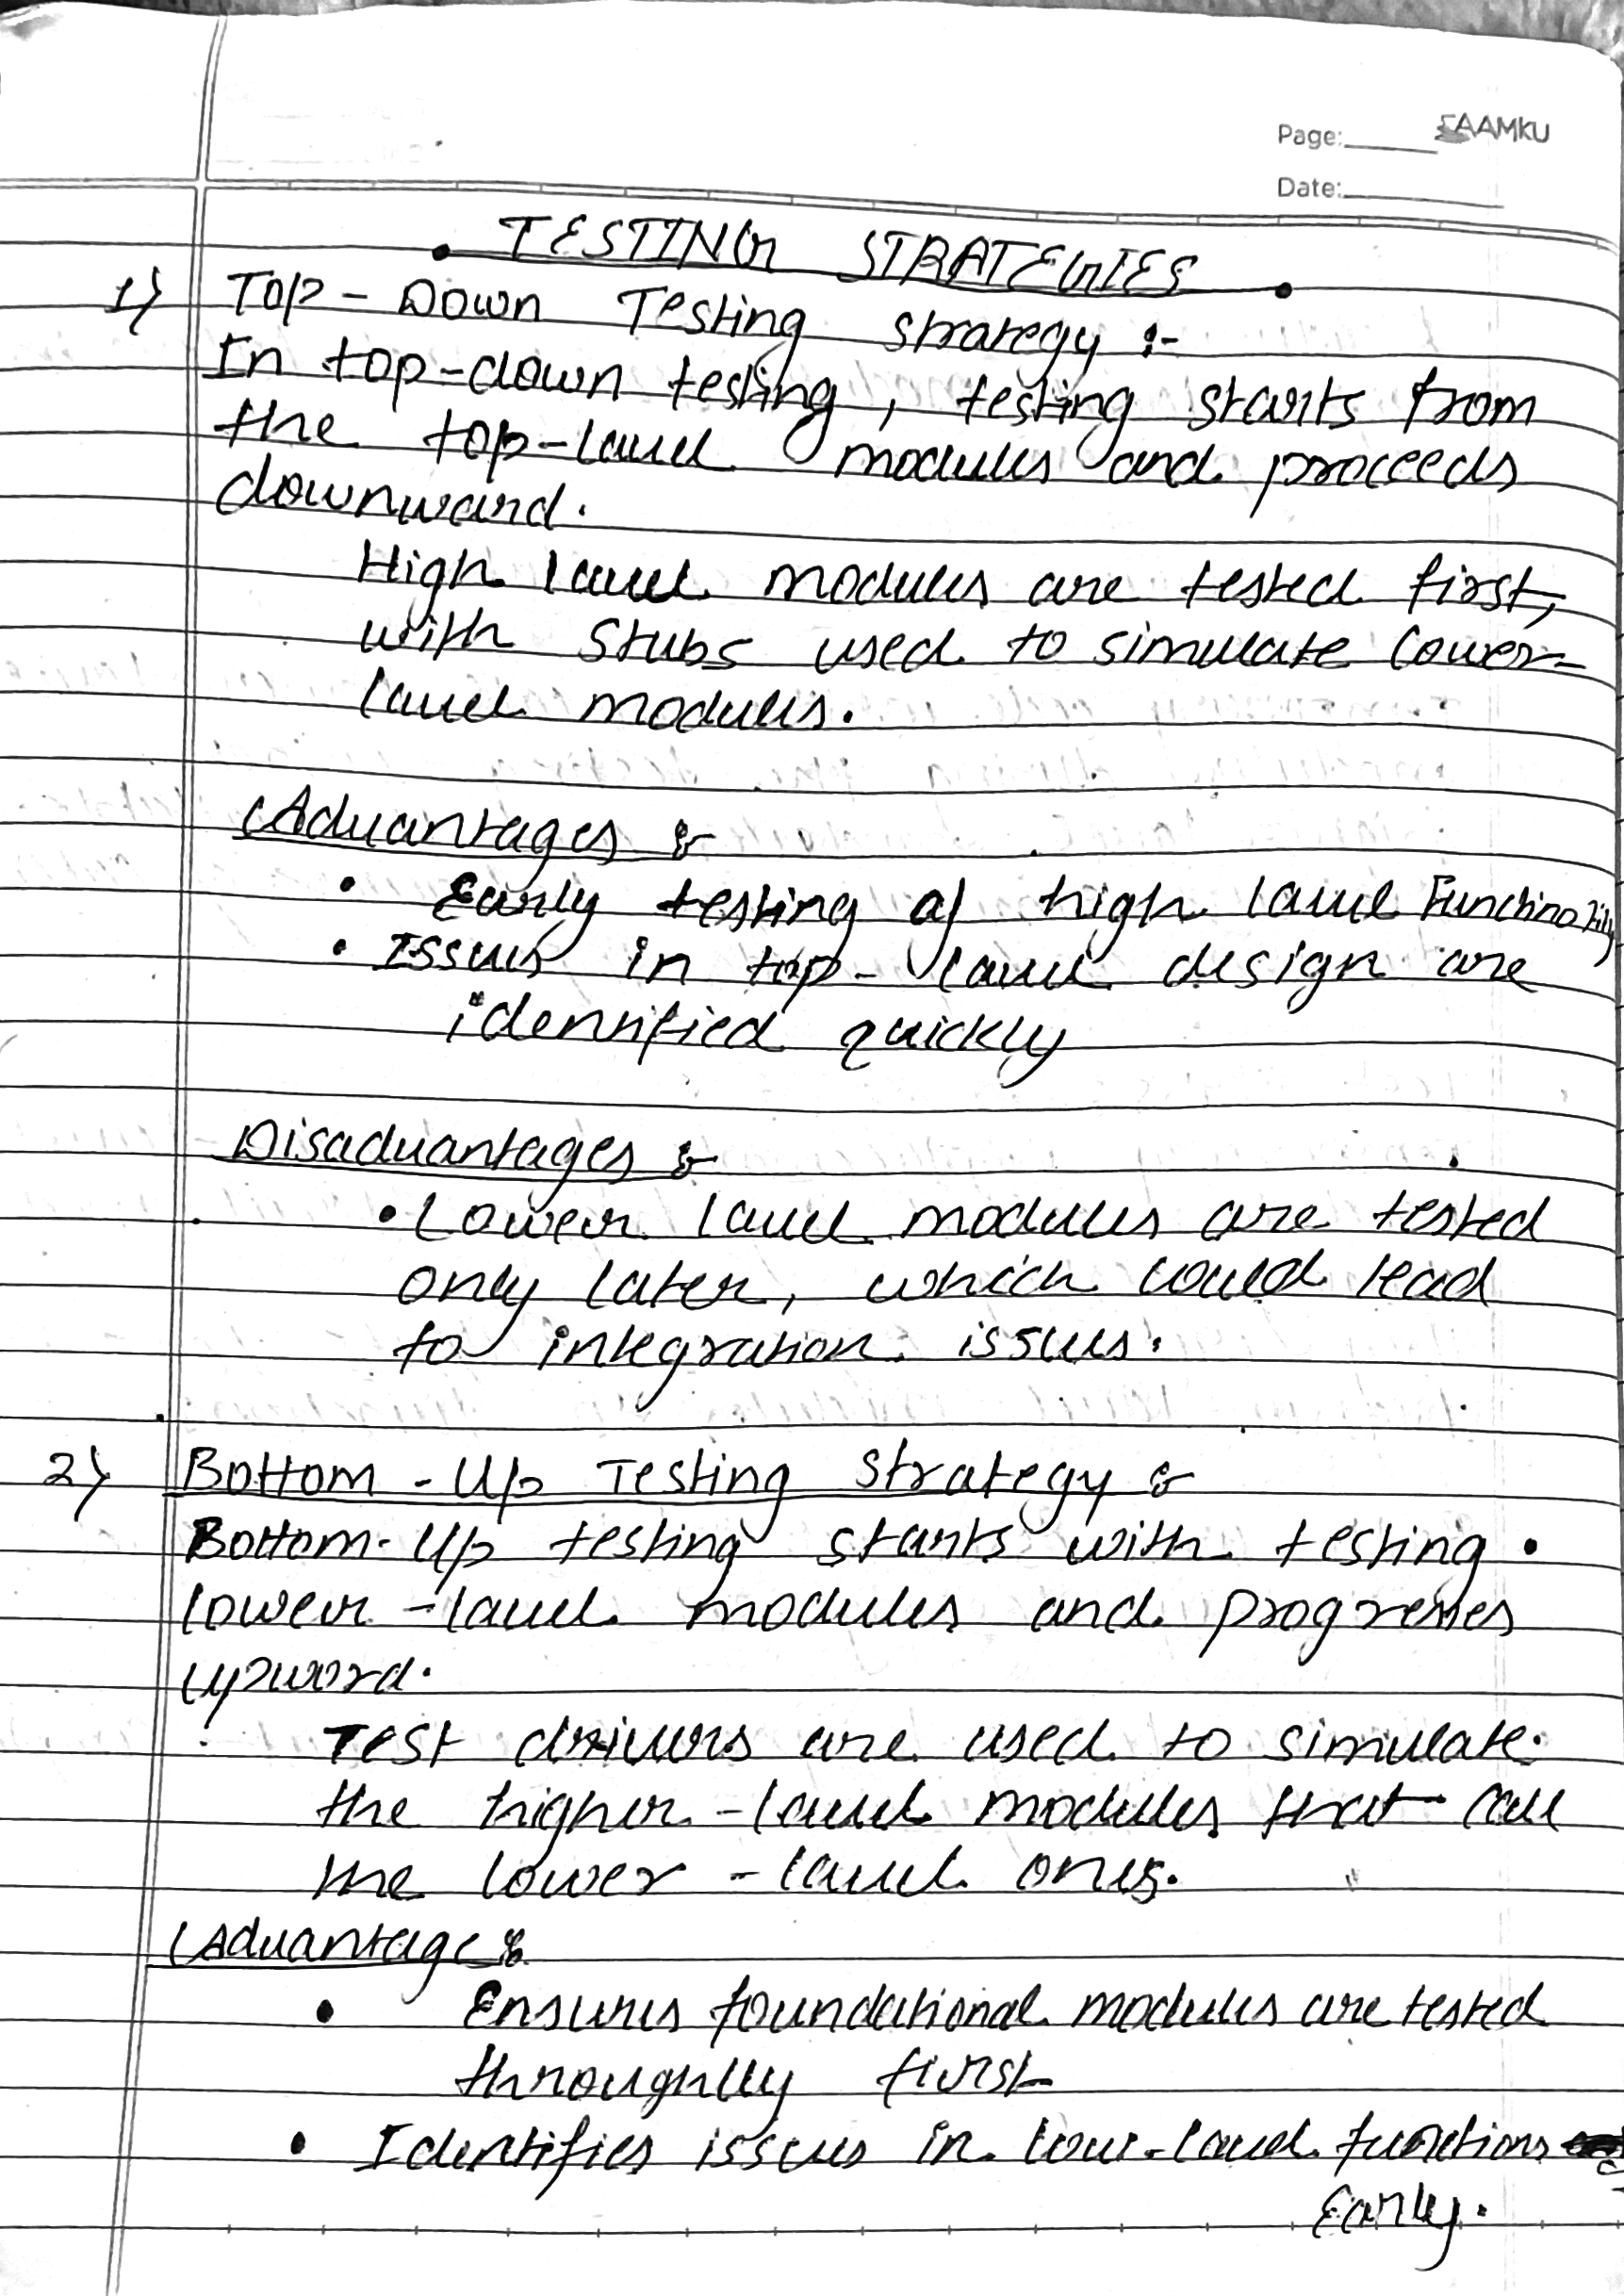 Page: SAAMKU
Date:
. TESTING STRATEGIES .
1) Top - Down Testing strategy :-
In top-down testing, testing starts from
the top-level modules and proceeds
downward.
High level modules are tested first,
with stubs used to simulate lower-
level modules.
Advantages :-
• Early testing of high level Functinolity
• Issues in top- level design are
identified quickly
Disadvantages :-
• Lower level modules are tested
only later, which could lead
to integration issues.
2) Bottom - Up Testing Strategy :-
Bottom-Up testing starts with testing .
lower -level modules and progresses
upword.
Test drivers are used to simulate
the higher -level modules that call
the lower - level ones.
Advantage :-
• Ensures foundational modules are tested
throughlly first
• Identifies issues in low-level functions
Early.